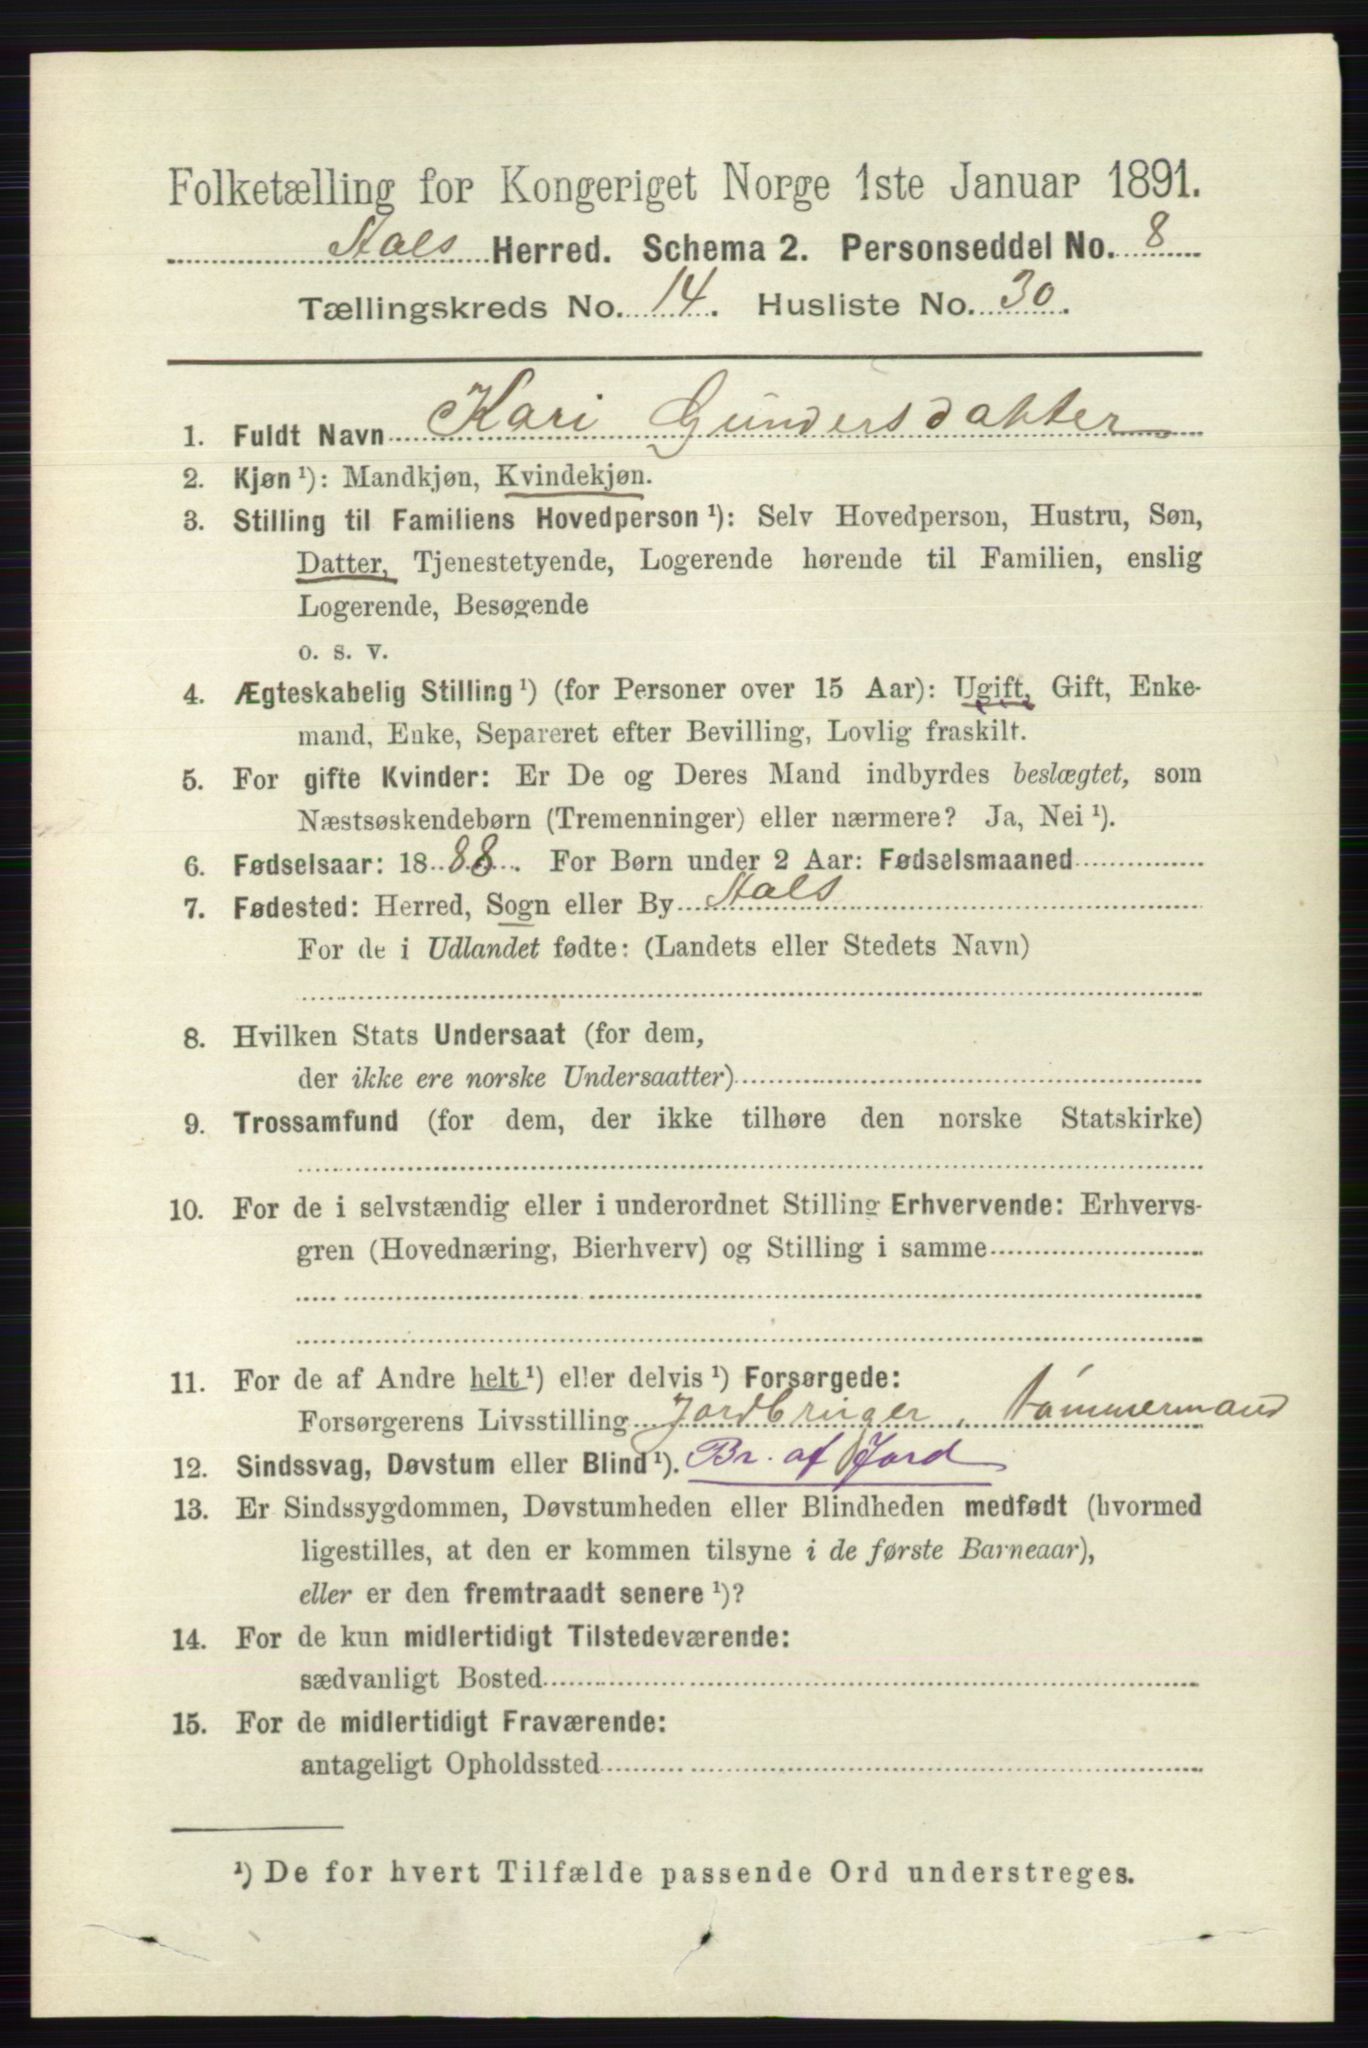 Folketælling for Kongeriget Norge 1ste Januar 1891.
Aals Herred. Schema 2. Personseddel No. 8
Tællingskreds No. 14. Husliste No. 30.
1. Fuldt Navn Kari Gundersdatter
2. Kjøn ¹): Mandkjøn, Kvindekjøn.
3. Stilling til Familiens Hovedperson ¹): Selv Hovedperson, Hustru, Søn,
Datter, Tjenestetyende, Logerende hørende til Familien, enslig
Logerende, Besøgende
o. s. v.
4. Ægteskabelig Stilling ¹) (for Personer over 15 Aar): Ugift, Gift, Enke-
mand, Enke, Separeret efter Bevilling, Lovlig fraskilt.
5. For gifte Kvinder: Er De og Deres Mand indbyrdes beslægtet, som
Næstsøskendebørn (Tremenninger) eller nærmere? Ja, Nei ¹).
6. Fødselsaar: 1888. For Børn under 2 Aar: Fødselsmaaned
7. Fødested: Herred, Sogn eller By Aals
For de i Udlandet fødte: (Landets eller Stedets Navn)
8. Hvilken Stats Undersaat (for dem,
der ikke ere norske Undersaatter)
9. Trossamfund (for dem, der ikke tilhøre den norske Statskirke)
10. For de i selvstændig eller i underordnet Stilling Erhvervende: Erhvervs-
gren (Hovednæring, Bierhverv) og Stilling i samme
11. For de af Andre helt ¹) eller delvis ¹) Forsørgede:
Forsørgerens Livsstilling Jordbruger, tømmermand
12. Sindssvag, Døvstum eller Blind ¹). Br. af Jord
13. Er Sindssygdommen, Døvstumheden eller Blindheden medfødt (hvormed
ligestilles, at den er kommen tilsyne i de første Barneaar),
eller er den fremtraadt senere ¹)?
14. For de kun midlertidigt Tilstedeværende:
sædvanligt Bosted
15. For de midlertidigt Fraværende:
antageligt Opholdssted
¹) De for hvert Tilfælde passende Ord understreges.